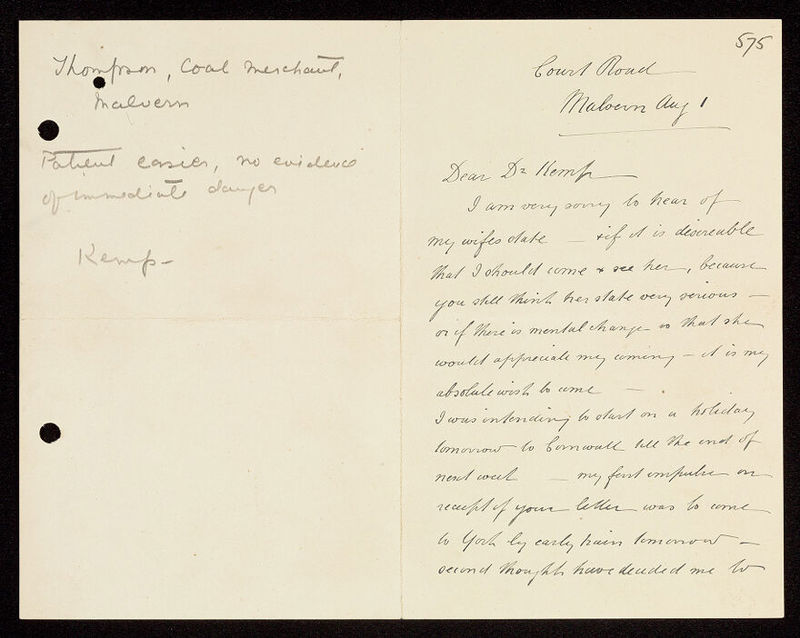 Thompson, Coal Merchant,
Malvern
Patient easier, no evidence
of immediate danger
Kemp –
575
Court Road
Malvern Aug 1
Dear Dr Kemp
I am very sorry to hear of
my wifes state – & if it is desireable
that I should come & see her, because
you still think her state very serious –
or if there is mental change so that she
would appreciate my coming – it is my
absolute wish to come –
I was intending to start on a holiday
tomorrow to Cornwall till the end of
next week – my first impulse on
receipt of your letter was to come
to York by early train tomorrow –
second thoughts have decided me to